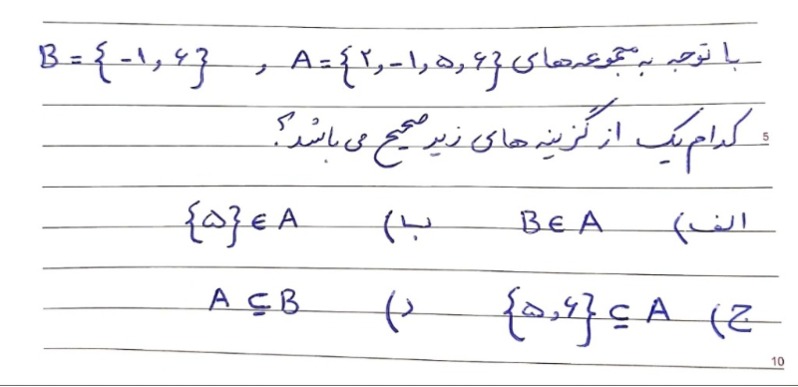 با توجه به مجموعه‌های A={۲,-۱,۵,۶} , B={-۱,۶}
کدام یک از گزینه های زیر صحیح می باشد؟
5
الف) B∈A ب) {۵}∈A
ج) {۵,۶}⊆A د) A⊆B
10